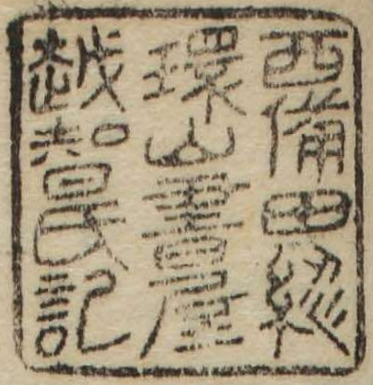 西備田総
環山書屋
越智氏記